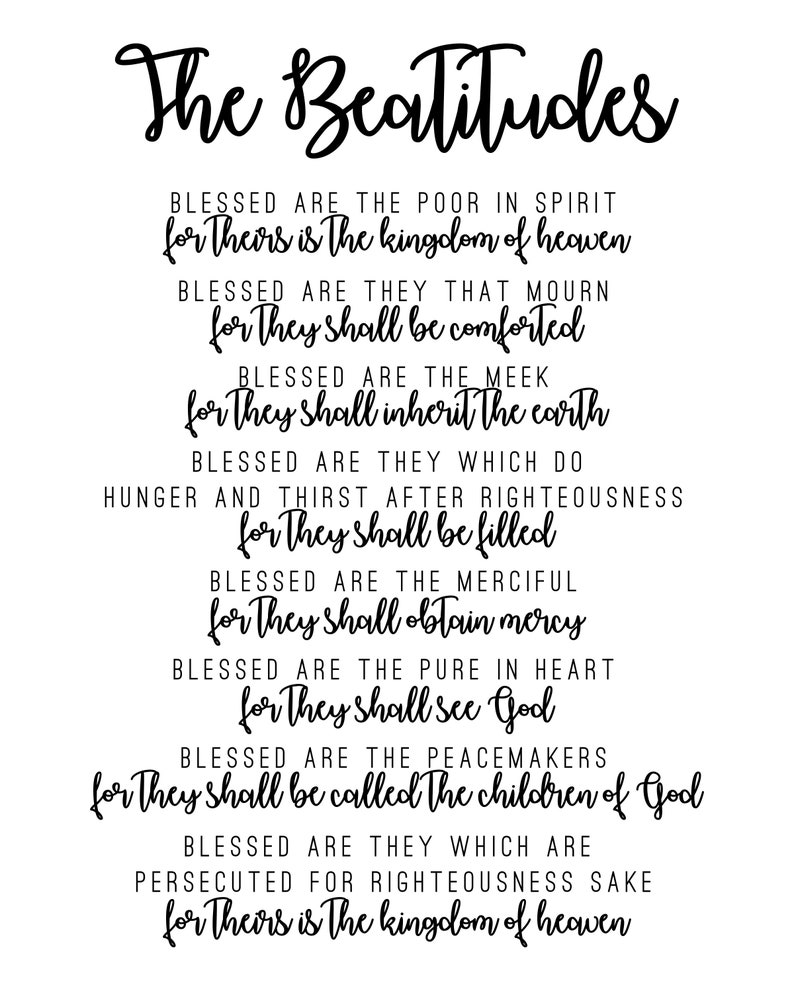 The Beatitudes
BLESSED ARE THE POOR IN SPIRIT
for theirs is the kingdom of heaven
BLESSED ARE THEY THAT MOURN
for they shall be comforted
BLESSED ARE THE MEEK
for they shall inherit the earth
BLESSED ARE THEY WHICH DO
HUNGER AND THIRST AFTER RIGHTEOUSNESS
for they shall be filled
BLESSED ARE THE MERCIFUL
for they shall obtain mercy
BLESSED ARE THE PURE IN HEART
for they shall see God
BLESSED ARE THE PEACEMAKERS
for they shall be called the children of God
BLESSED ARE THEY WHICH ARE
PERSECUTED FOR RIGHTEOUSNESS SAKE
for theirs is the kingdom of heaven